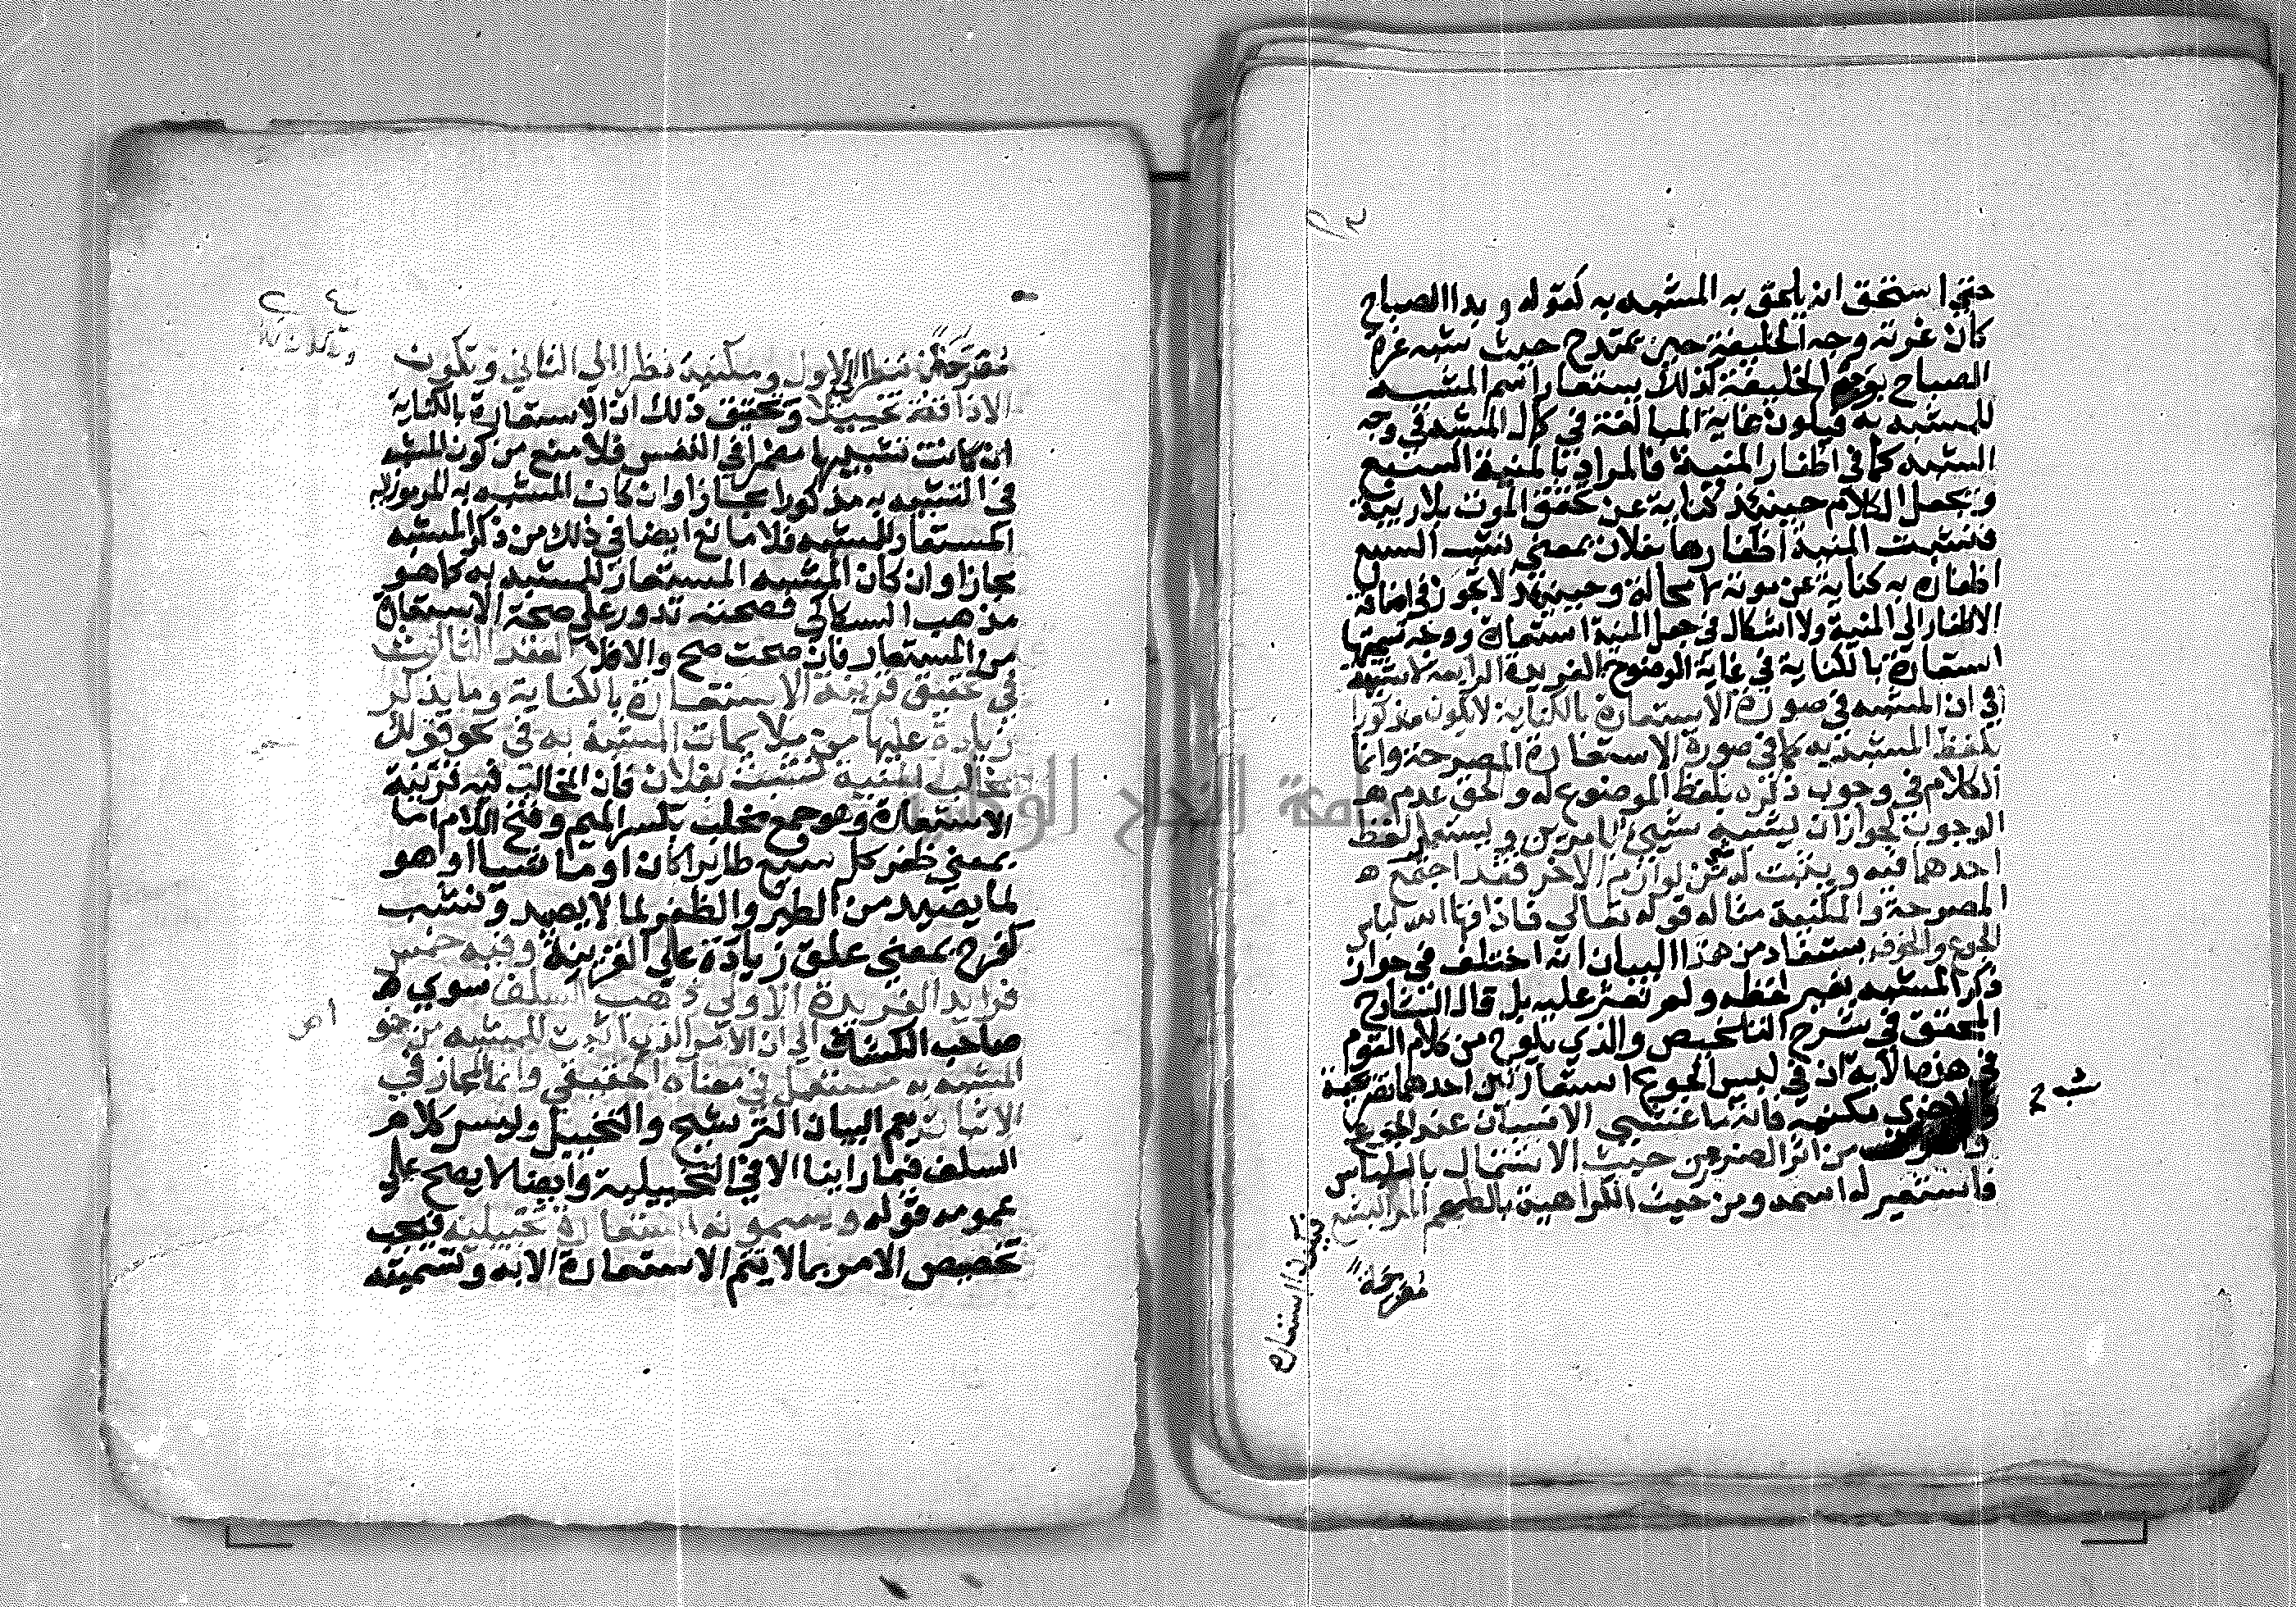 حتي استحق ان يلحق به المشبه به كقوله وبدا الصباح
كان غرته وجه الخليفة حين يمتدح حيث شبه غرة
الصباح بوجه الخليفة كذلك يستعار اسم المشبه
للمشبه به فيكون غاية المبالغة في كمال المشبه في وجه
الشبه كما في اظفار المنية فالمراد بالمنية السبع
ويجعل الكلام حينئذ كناية عن تحقق الموت بلا ريبة
فنشبت المنية اظفارها بفلان بمعني نشب السبع
اظفاره به كناية عن موته لا محالة وحينئذ لا تجوز في اضافة
الاظفار الي المنية ولا اشكال في جعل المنية استعارة ووجه تسميتها
استعارة بالكناية في غاية الوضوح الفريدة الرابعة لا شبهة
في ان المشبه في صورة الاستعارة بالكناية لا يكون مذكورا
بلفظ المشبه به كما في صورة الاستعارة المصرحة وانما
الكلام في وجوب ذكره بلفظ الموضوع له والحق عدم ه
الوجوب لجواز ان يشبه شيئ بامرين ويستعمل لفظ
احدهما فيه ويثبت له من لوازم الاخر فقد اجتمع ه
المصرحة والمكنية مثاله قوله تعالي فاذاقها الله لباس
الجوع والخوف يستفاد من هذا البيان انه اختلف في جواز
ذكر المشبه بغير لفظه ولم نعثر عليه بل قال الشارح
المحقق في شرح التلخيص والذي يلوح من كلام القوم
في هذه الاية ان في لباس الجوع استعارتين احدهما تصريحية
والاخري مكنية فانه ما غشي الانسان عند الجوع
والخوف من اثر الضرر من حيث الاشتمال باللباس
فاستعير له اسمه ومن حيث الكراهية بالطعم المر البشع
فيكون استعارة
مصرحة
شبه
مصرحة نظرا الي الاول ومكنية نظرا الي الثاني وتكون
الاذاقة تخييلا وتحقيق ذلك ان الاستعارة بالكناية
ان كانت تشبيها مضمرا في النفس فلا منع من كون المشبه
في التشبيه به مذكورا مجازا وان كان المشبه به المرموز له
المستعار للمشبه فلا مانع ايضا في ذلك من ذكر المشبه
مجازا وان كان المشبه المستعار للمشبه به كما هو
مذهب السكاكي فصحته تدور علي صحة الاستعارة
من المستعار فان صحت صح والا فلا العقد الثالث
في تحقيق قرينة الاستعارة بالكناية وما يذكر
زيادة عليها من ملايمات المشبه به في نحو قولك
مخالب المنية نشبت بفلان فان المخالب فيه قرينة
الاستعارة وهو جمع مخلب بكسر الميم وفتح اللام اما
بمعني ظفر كل سبع طايرا كان او ماشيا او هو
لما يصيد من الطير والظفر لما لا يصيد ونشب
كفرح بمعني علق زيادة علي القرينة وفيه خمس
فرايد الفريدة الاولي ذهب السلف سوي ه
صاحب الكشاف الي ان الامر الذي اثبت للمشبه من خو
المشبه به مستعمل في معناه الحقيقي وانما المجاز في
الاثبات يعم البيان الترشيح والتخييل وليس كلام
السلف فيما راينا الا في التخييلية وايضا لا يصح علي
عمومه قوله ويسمونه استعارة تخييلية فيجب
تخصيص الامر بما لا يتم الاستعارة الا به وتسميته
اص
جامعة النجاح الوطنية